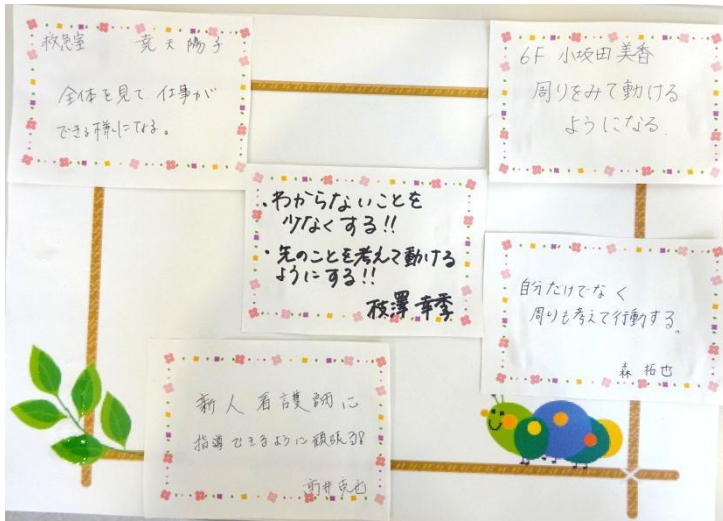 救急室 荒天陽子
全体を見て、仕事が
できる様になる。
6F 小坂田美香
周りをみて動ける
ようになる.
・わからないことを
少なくする!!
・先のことを考えて動ける
ようにする!!
枝澤 幸季
自分だけでなく
周りも考えて行動する。
森 拓也
新人看護師に
指導できるように頑張る!
克也